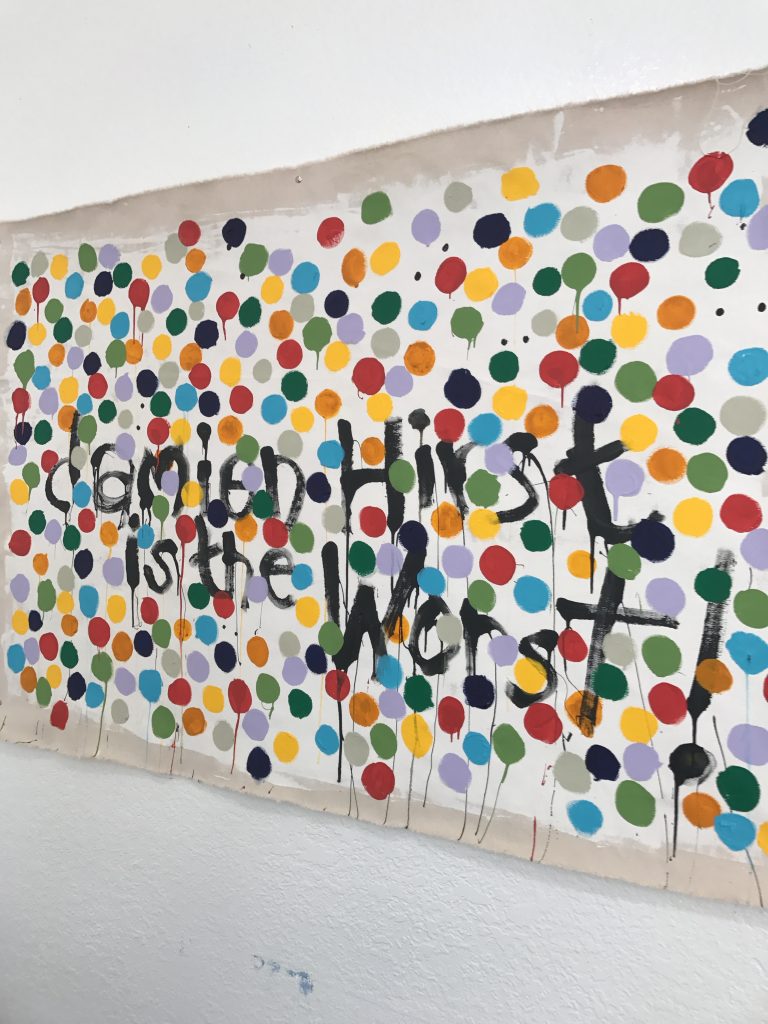 damien Hirst
is the Worst!